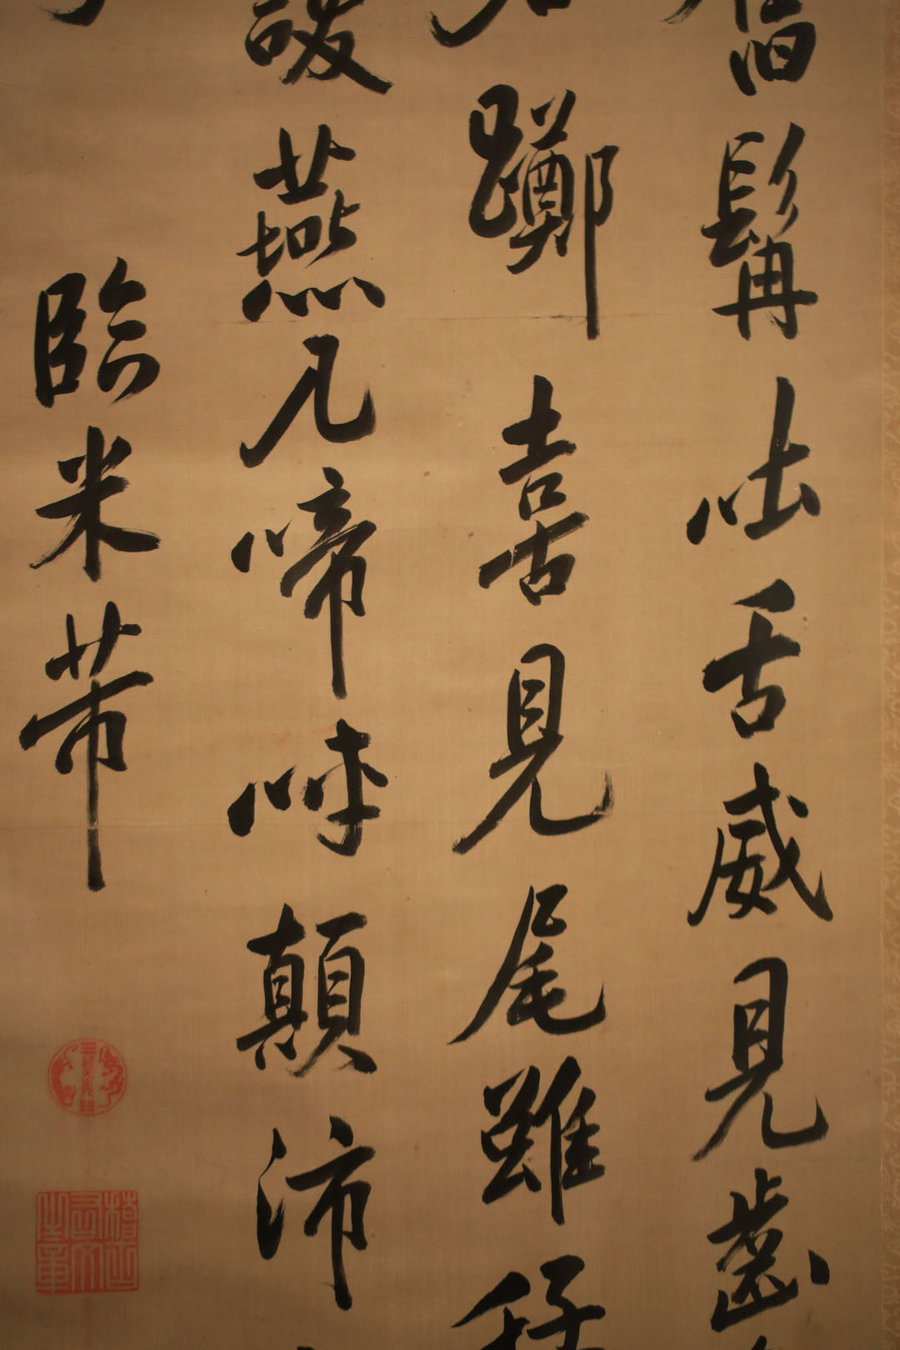 髯吐舌威見齒
躑喜見尾雖
燕几啼呼顛沛
臨米芾